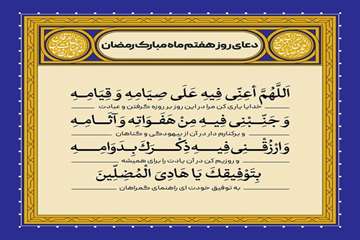 دعای روز هفتم ماه مبارک رمضان
اَللّهُمَّ اَعِنّی فیهِ عَلَی صِیامِهِ وَ قِیامِهِ
خدایا یاری کن مرا در این روز بر روزه گرفتن و عبادت
وَ جَنِّبْنی فیهِ مِنْ هَفَواتِهِ وَ آثامِهِ
و برکنارم دار در آن از بیهودگی و گناهان
وَارْزُقْنی فیهِ ذِکْرَكَ بِدَوامِهِ
و روزیم کن در آن یادت را برای همیشه
بِتَوْفیقِكَ یا هادِیَ الْمُضِلّینَ
به توفیق خودت ای راهنمای گمراهان